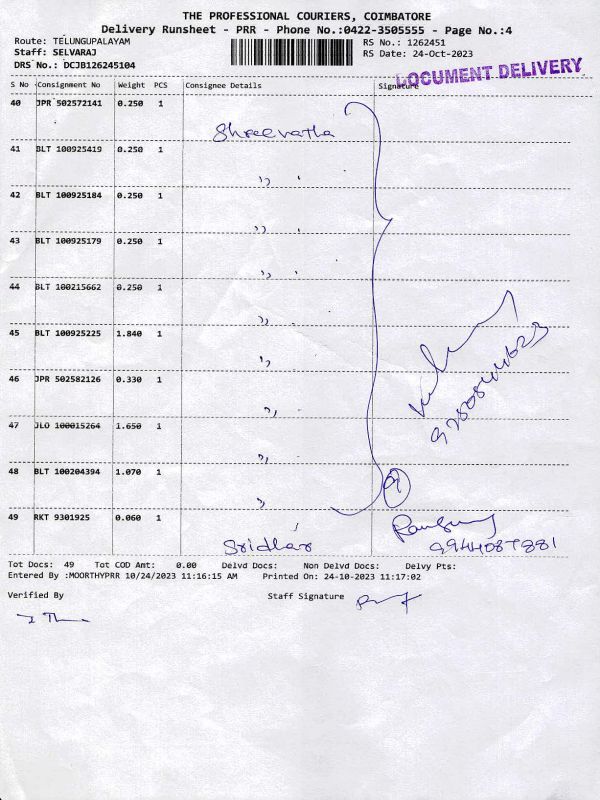 THE PROFESSIONAL COURIERS, COIMBATORE
Delivery Runsheet - PRR - Phone No.:0422-3505555 - Page No.:4
Route: TELUNGUPALAYAM
Staff: SELVARAJ
DRS No.: DCJB126245104
RS No.: 1262451
RS Date: 24-Oct-2023
DOCUMENT DELIVERY
S No Consignment No Weight PCS Consignee Details Signature
40 JPR 502572141 0.250 1
Shreevatha
41 BLT 100925419 0.250 1
,,
42 BLT 100925184 0.250 1
,,
43 BLT 100925179 0.250 1
,,
44 BLT 100215662 0.250 1
,,
45 BLT 100925225 1.840 1
,,
46 JPR 502582126 0.330 1
,,
47 JLO 100015264 1.650 1
,,
48 BLT 100204394 1.070 1
,,
49 RKT 9301925 0.060 1
Sridhar
9944087881
Tot Docs: 49 Tot COD Amt: 0.00 Delvd Docs: Non Delvd Docs: Delvy Pts:
Entered By :MOORTHYPRR 10/24/2023 11:16:15 AM Printed On: 24-10-2023 11:17:02
Verified By Staff Signature